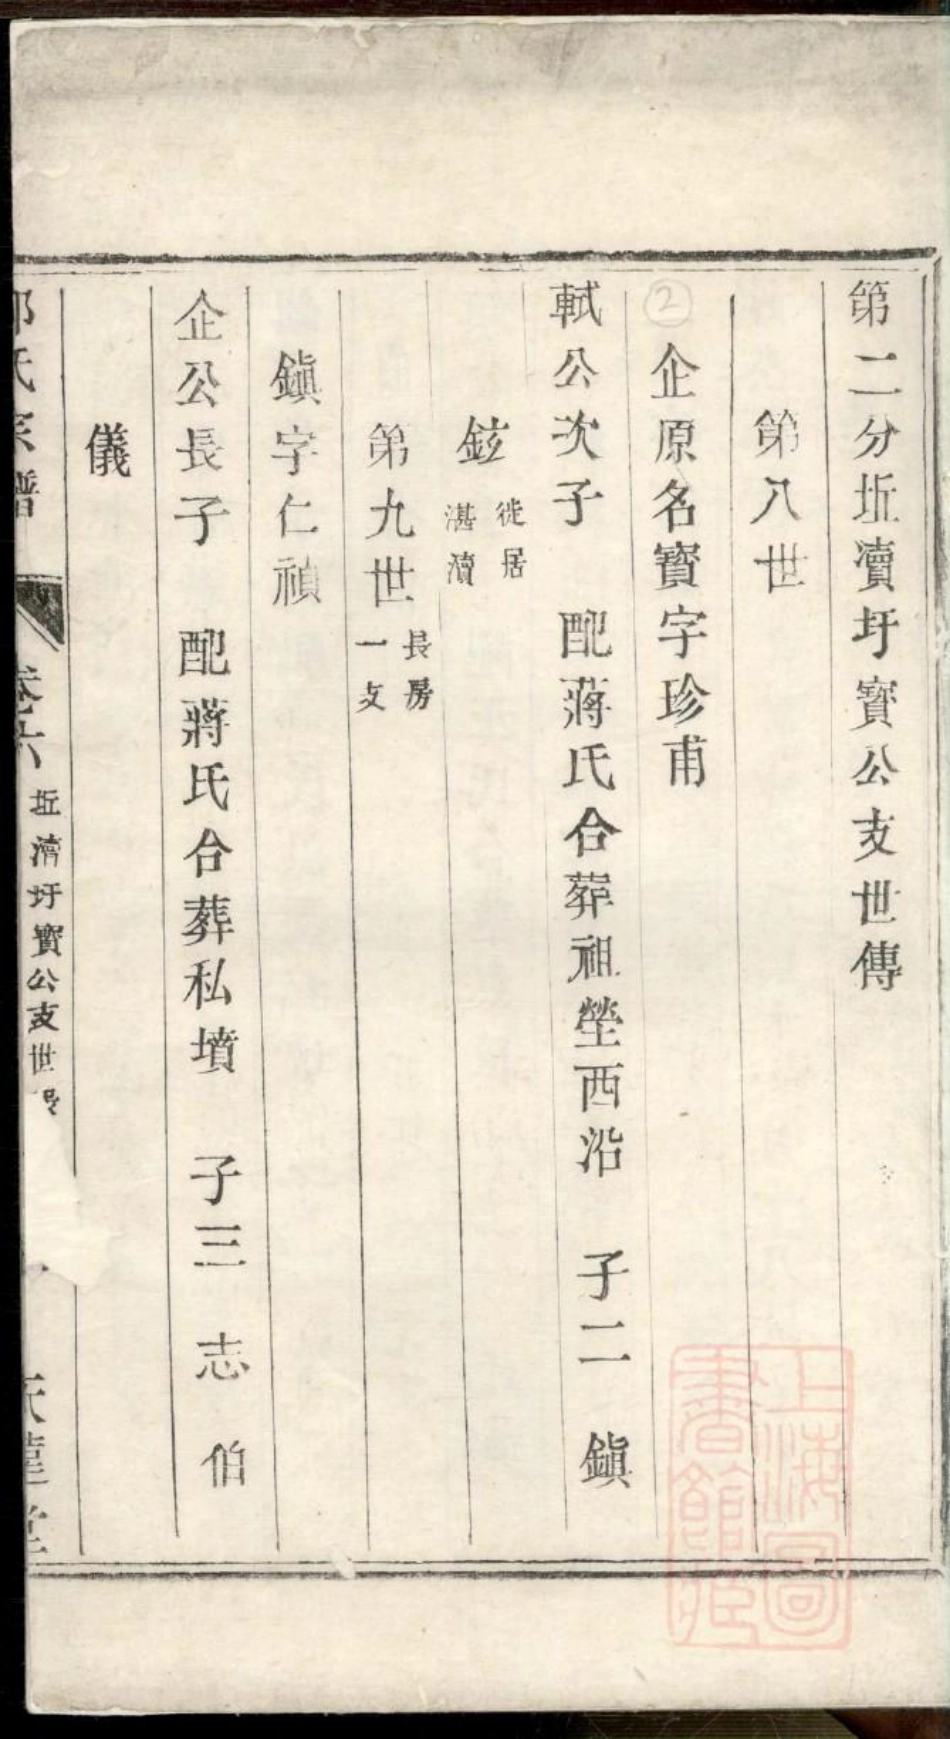 第二分坵瀆圩寳公支世傳
第八世
②
企原名寳字珍甫
軾公次子 配蔣氏合葬祖塋西沿 子二 鎭
鉉 徙居湛瀆
第九世 長房一支
鎭字仁禎
企公長子 配蔣氏合葬私墳 子三 志 伯
儀
氏宗譜
卷六 坵瀆圩寳公支世
堂
上海圖
書館藏